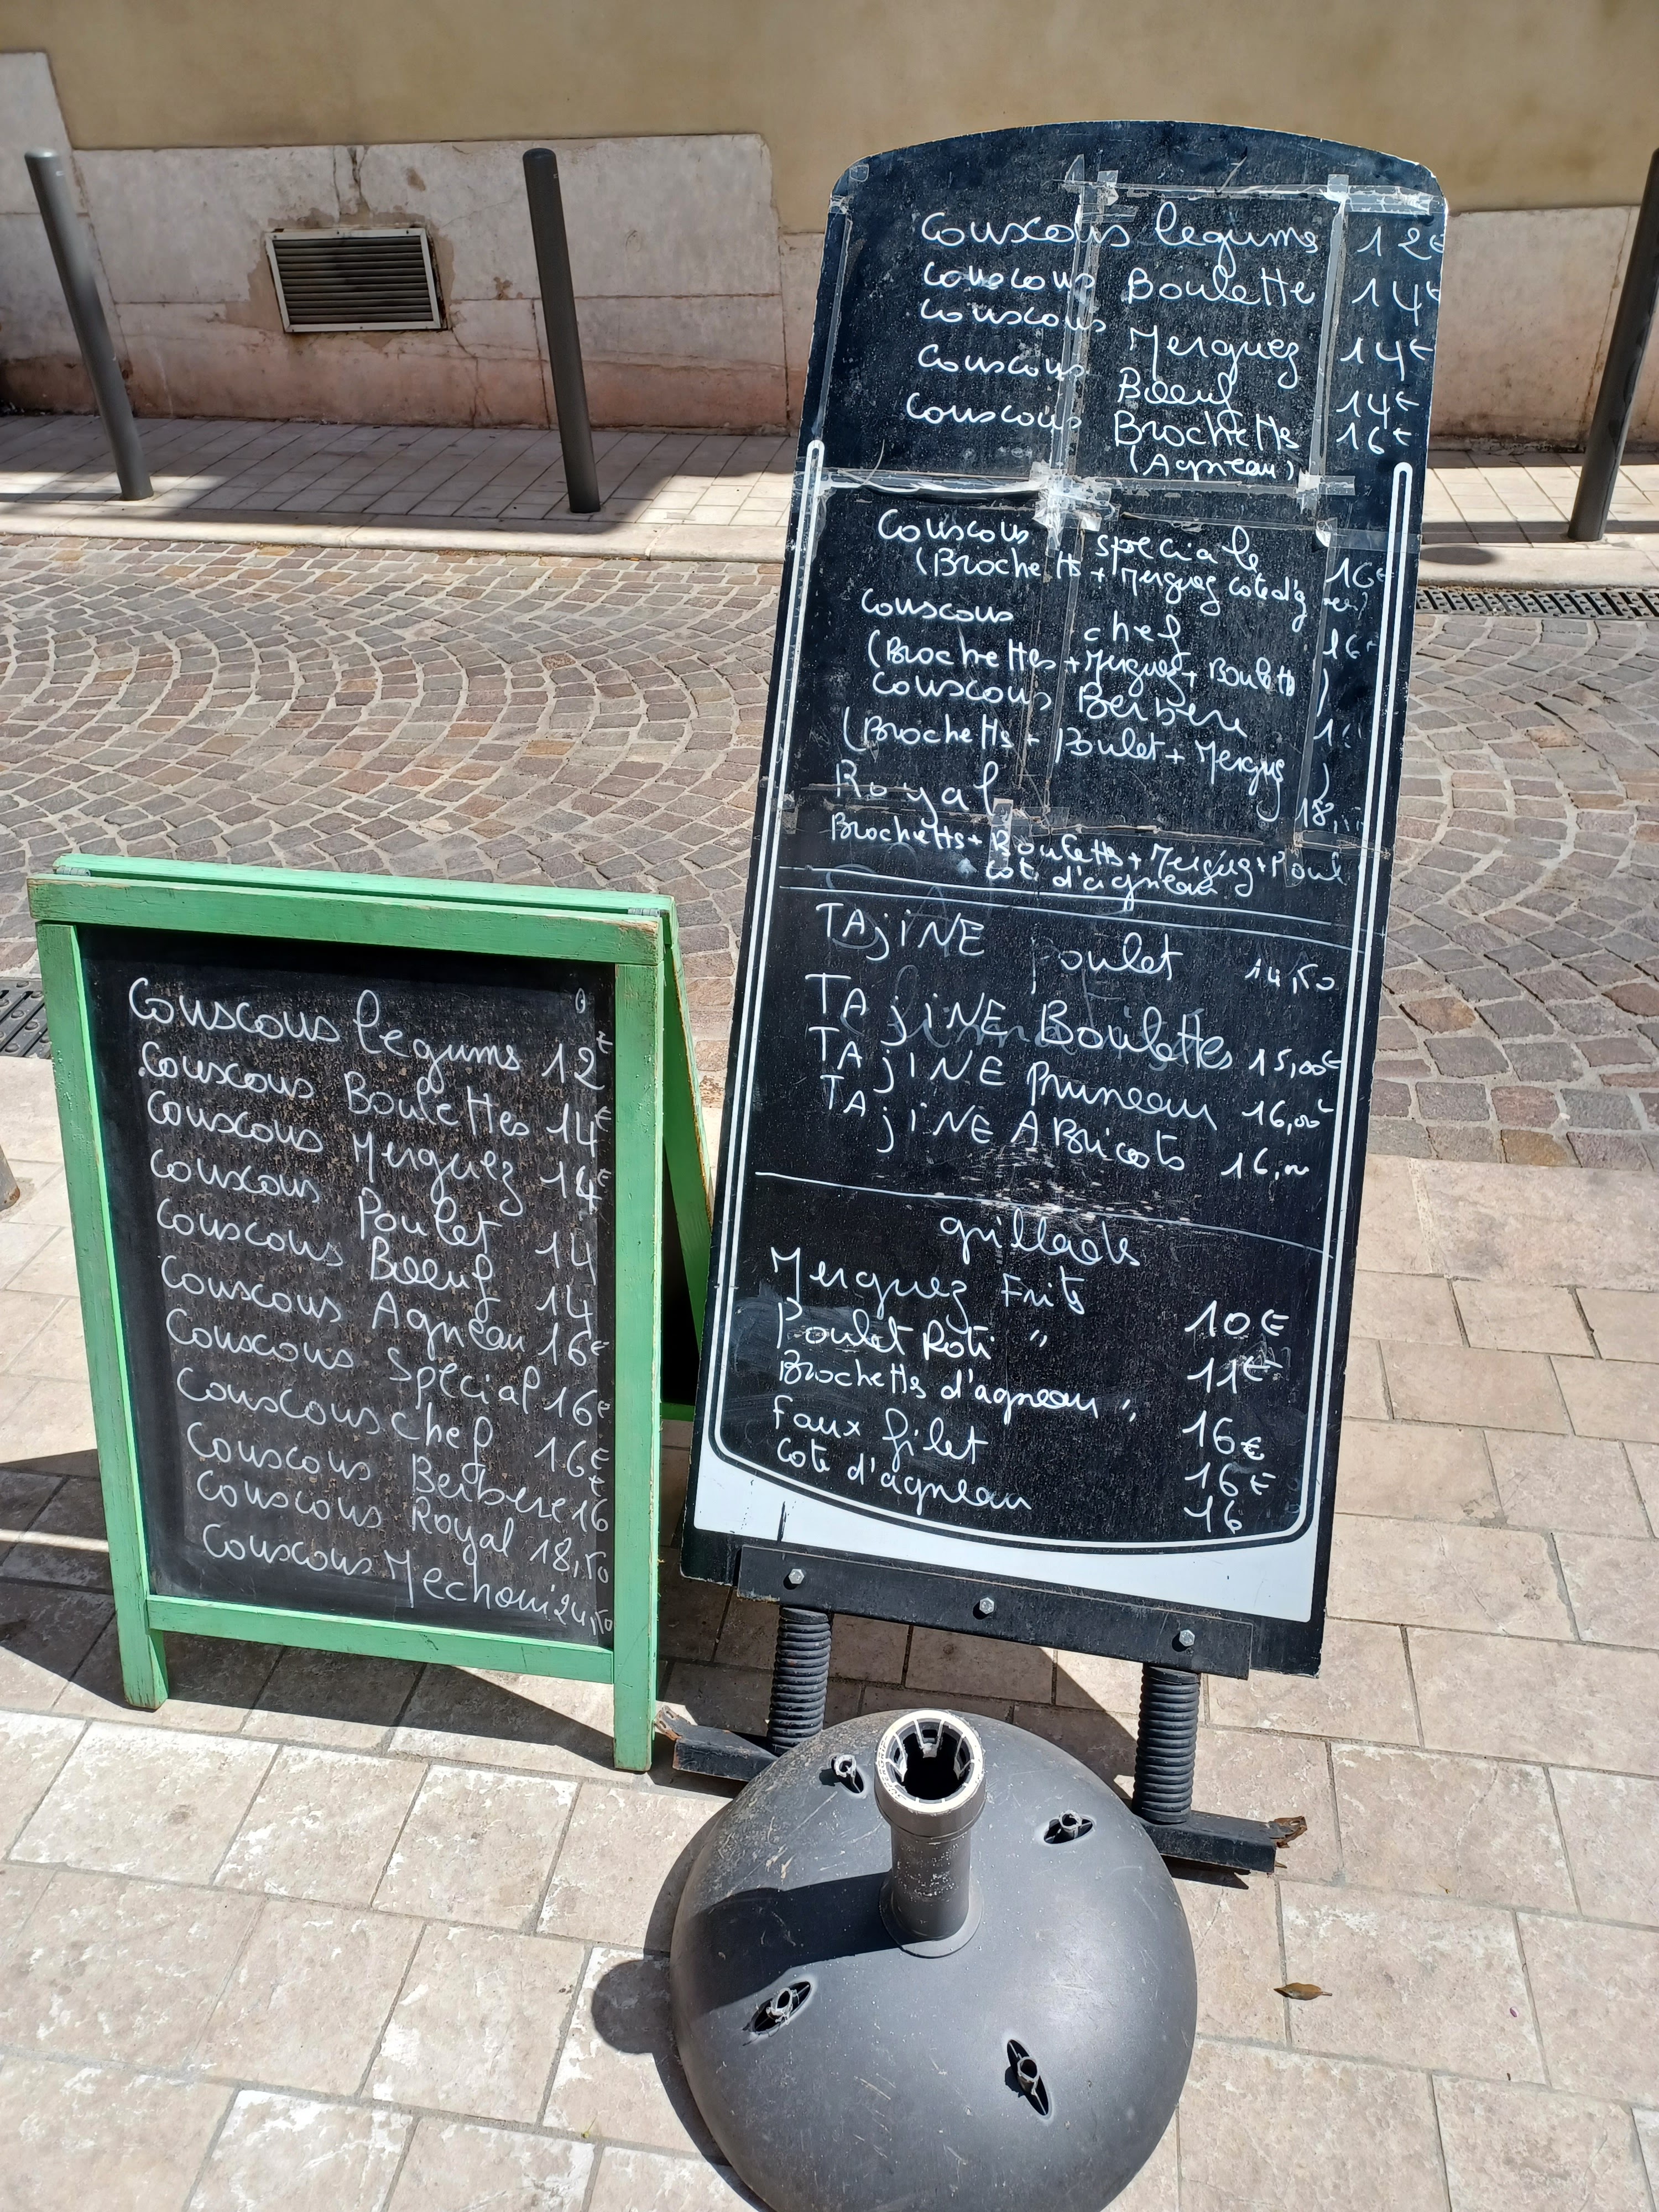 Couscous legums 12€
Couscous Boulettes 14€
Couscous Merguez 14€
Couscous Poulet 14
Couscous Boeuf 14
Couscous Agneau 16€
Couscous Special 16€
Couscous chef 16€
Couscous Berbere 16€
Couscous Royal 18,50
Couscous Mechoui 24,50
Couscous legums 12€
Couscous Boulette 14€
Couscous Merguez 14€
Couscous Boeuf 14€
Couscous Brochetts 16€
(Agneau)
Couscous speciale 16€
(Brochetts + Merguez cote d'ag
Couscous chef 16€
(Brochettes + Merguez + Bouletts)
Couscous Berbere
(Brochetts + Poulet + Merguez)
Royal 18,
Brochetts + Bouletts + Merguez + Poul
cote d'agneau
TAjiNE poulet 14,50
TAjiNE Boulettes 15,00€
TAjiNE Pruneau 16,00€
TAjiNE ABricots 16,00
grillads
Merguez Frits 10€
Poulet Roti " 11€
Brochetts d'agneau " 16€
Faux filet 16€
Cote d'agneau 16